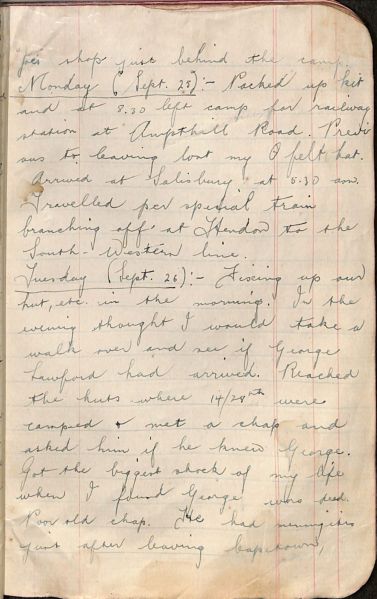 Joe's shop just behind the camp.
Monday (Sept. 25):- Packed up kit
and at 8.30 left camp for railway
station at Ampthill Road. Previ
ous to leaving lost my O felt hat.
Arrived at Salisbury at 5.30 am.
Travelled per special train
branching off at Hendon to the
South-Western line.
Tuesday (Sept. 26):- Fixing up our
hut, etc. in the morning. In the
evening thought I would take a
walk over and see if George
Lawford had arrived. Reached
the huts where 14/28th were
camped & met a chap and
asked him if he knew George.
Got the biggest shock of my life
when I found George was dead.
Poor old chap. He had meningitis
just after leaving Capetown,